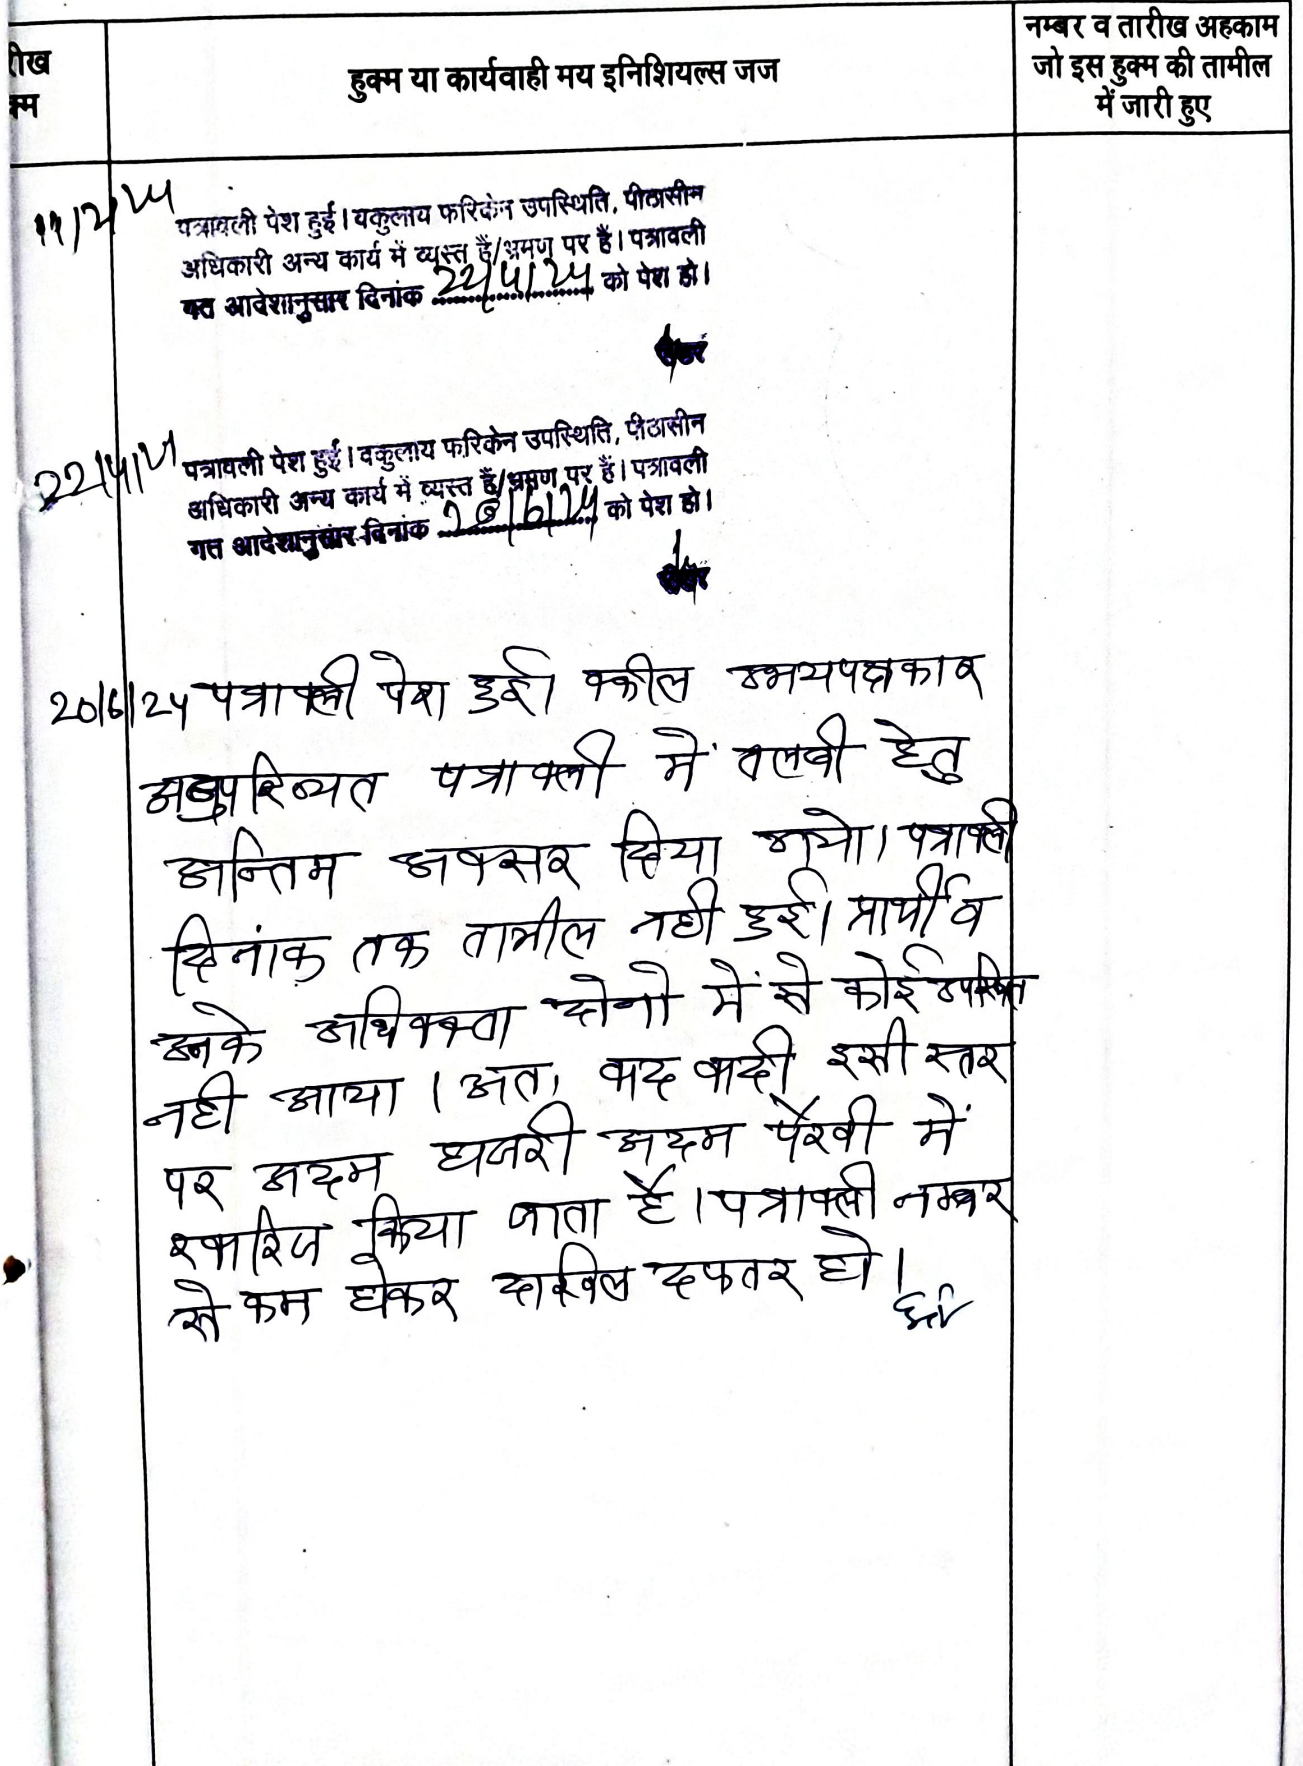 रीख
क्म
हुक्म या कार्यवाही मय इनिशियल्स जज
नम्बर व तारीख अहकाम
जो इस हुक्म की तामील
में जारी हुए
पत्रावली पेश हुई। वकुलाय फरिकेन उपस्थिति, पीठासीन
अधिकारी अन्य कार्य में व्यस्त हैं/भ्रमण पर हैं। पत्रावली
गत आदेशानुसार दिनांक 22/4/24 को पेश हो।
22/4/24
पत्रावली पेश हुई। वकुलाय फरिकेन उपस्थिति, पीठासीन
अधिकारी अन्य कार्य में व्यस्त हैं/भ्रमण पर हैं। पत्रावली
गत आदेशानुसार दिनांक 20/6/24 को पेश हो।
20/6/24 पत्रावली पेश हुई। वकील उभयपक्षकार
अनुपस्थित पत्रावली में तलबी हेतु
अन्तिम अवसर दिया गयो। पत्रावली
दिनांक तक तामील नही हुई। प्रार्थी व
उनके अधिवक्ता दोनो में से कोई उपस्थित
नही आया। अतः वाद वादी इसी स्तर
पर अदम हाजरी अदम पैरवी में
खारिज किया जाता है। पत्रावली नम्बर
से कम होकर दाखिल दफतर हो।